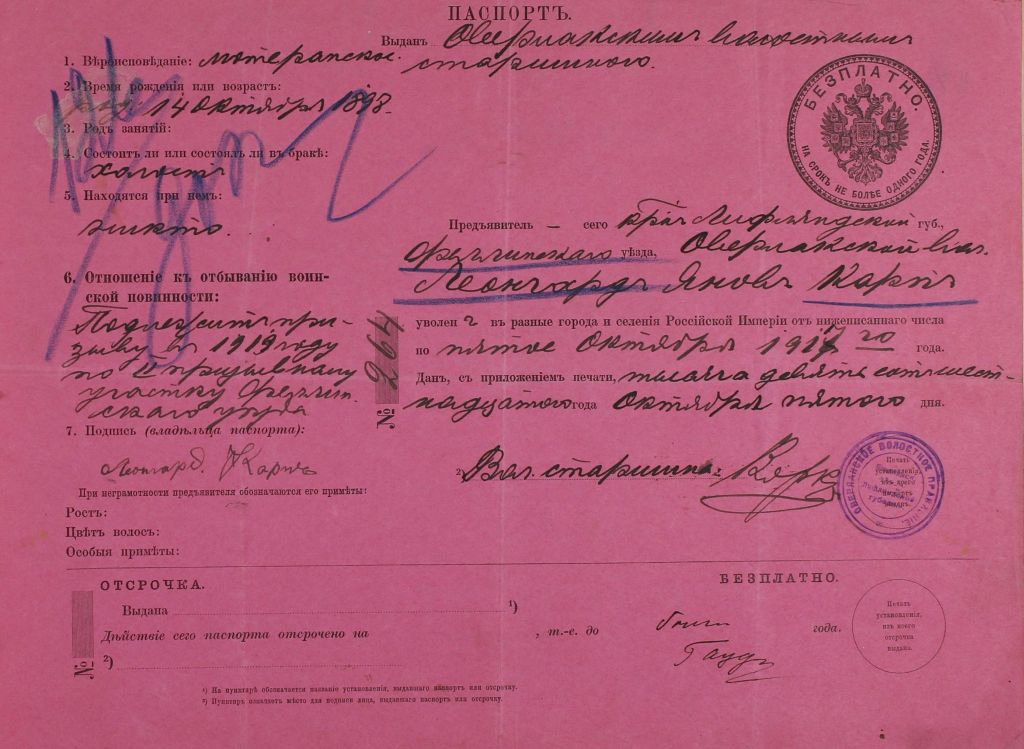 ПАСПОРТЪ.
Выданъ Оверлакскимъ волостнымъ
старшиною.
1. Вѣроисповѣданіе: лютеранское.
2. Время рожденія или возрастъ:
14 Октября 1898.
3. Родъ занятій:
4. Состоитъ ли или состоялъ ли въ бракѣ:
холостъ
5. Находятся при немъ:
никто.
6. Отношеніе къ отбыванію воин-
ской повинности:
Подлежитъ при-
зыву въ 1919 году
по призывному
участку Феллин-
скаго уѣзда
7. Подпись (владѣльца паспорта):
Леонгард Карпъ
При неграмотности предъявителя обозначаются его примѣты:
Ростъ:
Цвѣтъ волосъ:
Особыя примѣты:
БЕЗПЛАТНО.
НА СРОКЪ НЕ БОЛѢЕ ОДНОГО ГОДА.
Предъявитель — сего кр. Лифляндской губ.,
Феллинскаго уѣзда, Оверлакской вол.
Леонгардъ Яновъ Карпъ
уволенъ въ разные города и селенія Россійской Имперіи отъ нижеписаннаго числа
по пятое Октября 1917 го года.
Данъ, съ приложеніемъ печати, тысяча девятьсотшест-
надцатого года Октября пятого дня.
№ 264
2) Вол. старшина:
ВОЛОСТНОЕ ПРАВЛЕНІЕ.
Печать
установленія,
ОТСРОЧКА.
БЕЗПЛАТНО.
Выдана 1)
Дѣйствіе сего паспорта отсрочено на , т.-е. до года.
2)
№
Печать
установленія,
изъ коего
отсрочка
выдана.
1) На пунктирѣ обозначается названіе установленія, выдавшаго паспортъ или отсрочку.
2) Пунктиръ означаетъ мѣсто для подписи лица, выдавшаго паспортъ или отсрочку.